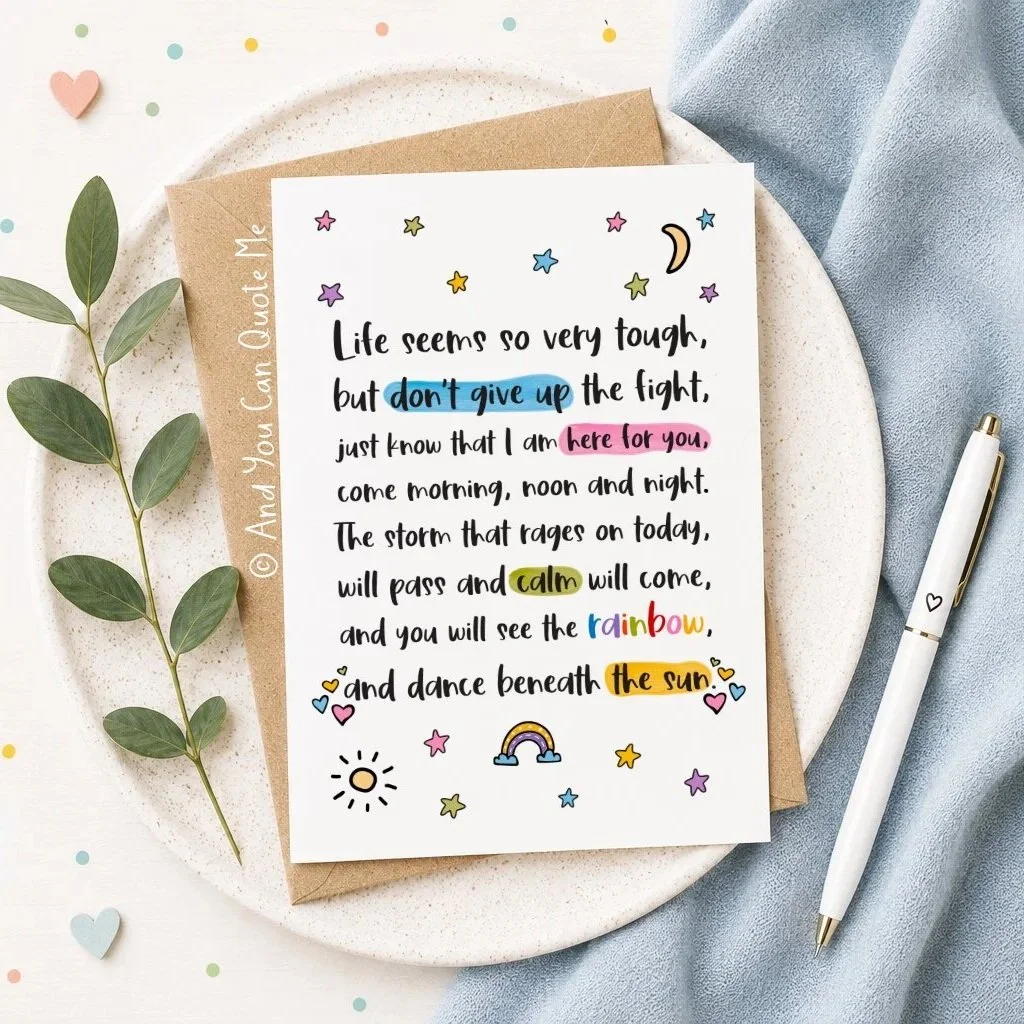 © And You Can Quote Me
Life seems so very tough,
but don't give up the fight,
just know that I am here for you,
come morning, noon and night.
The storm that rages on today,
will pass and calm will come,
and you will see the rainbow,
and dance beneath the sun.